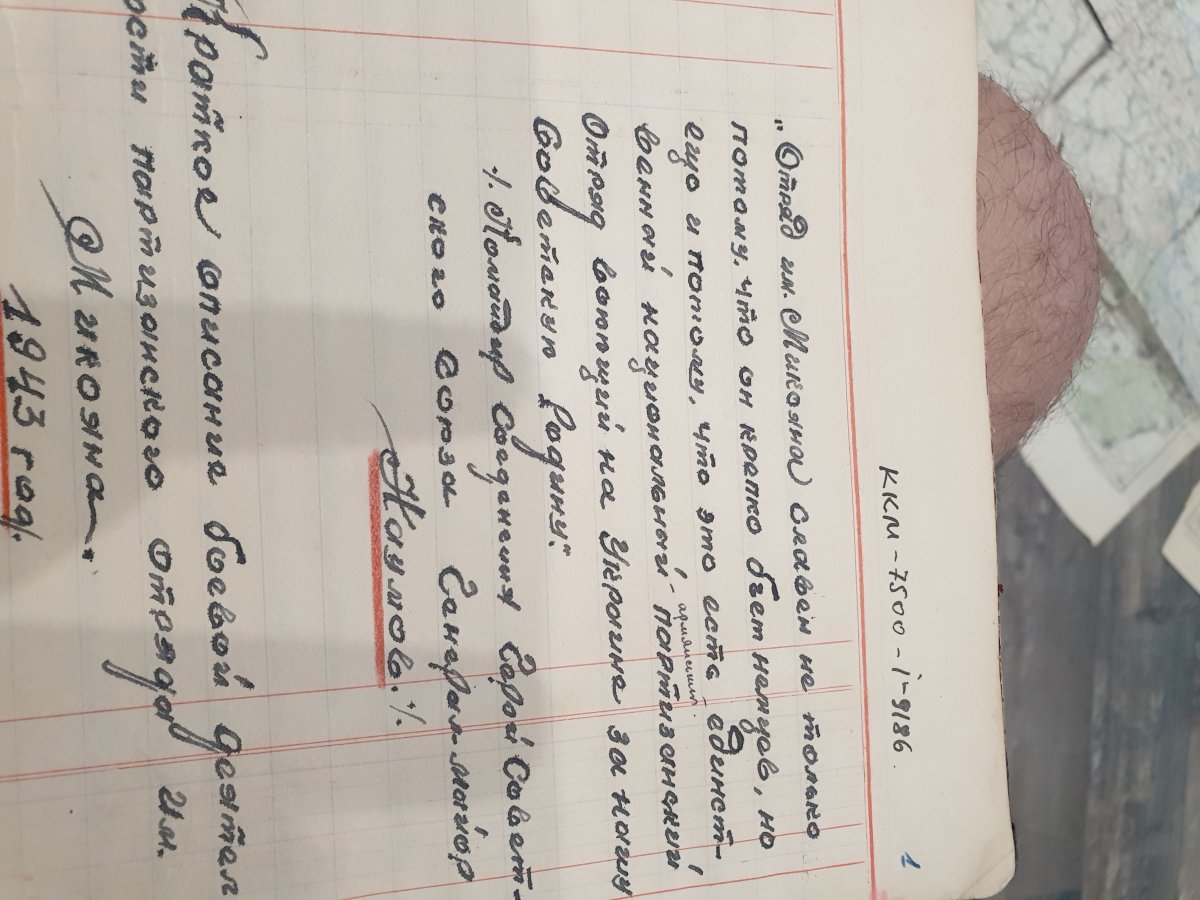 ККМ-7500-i-9186.
1
„Отряд им. Микояна славен не только
потому, что он крепко бьет немцев, но
ещо и потому, что это есть единст-
армянский
венный национальный партизанский
Отряд воюющий на Украине за нашу
Советскую Родину".
/. Командир Соединения Герой Совет-
ского союза Генерал-майор
Наумов. /.
Краткое описание боевой деятел
ости партизанского отряда им.
Микояна.
1943 год.